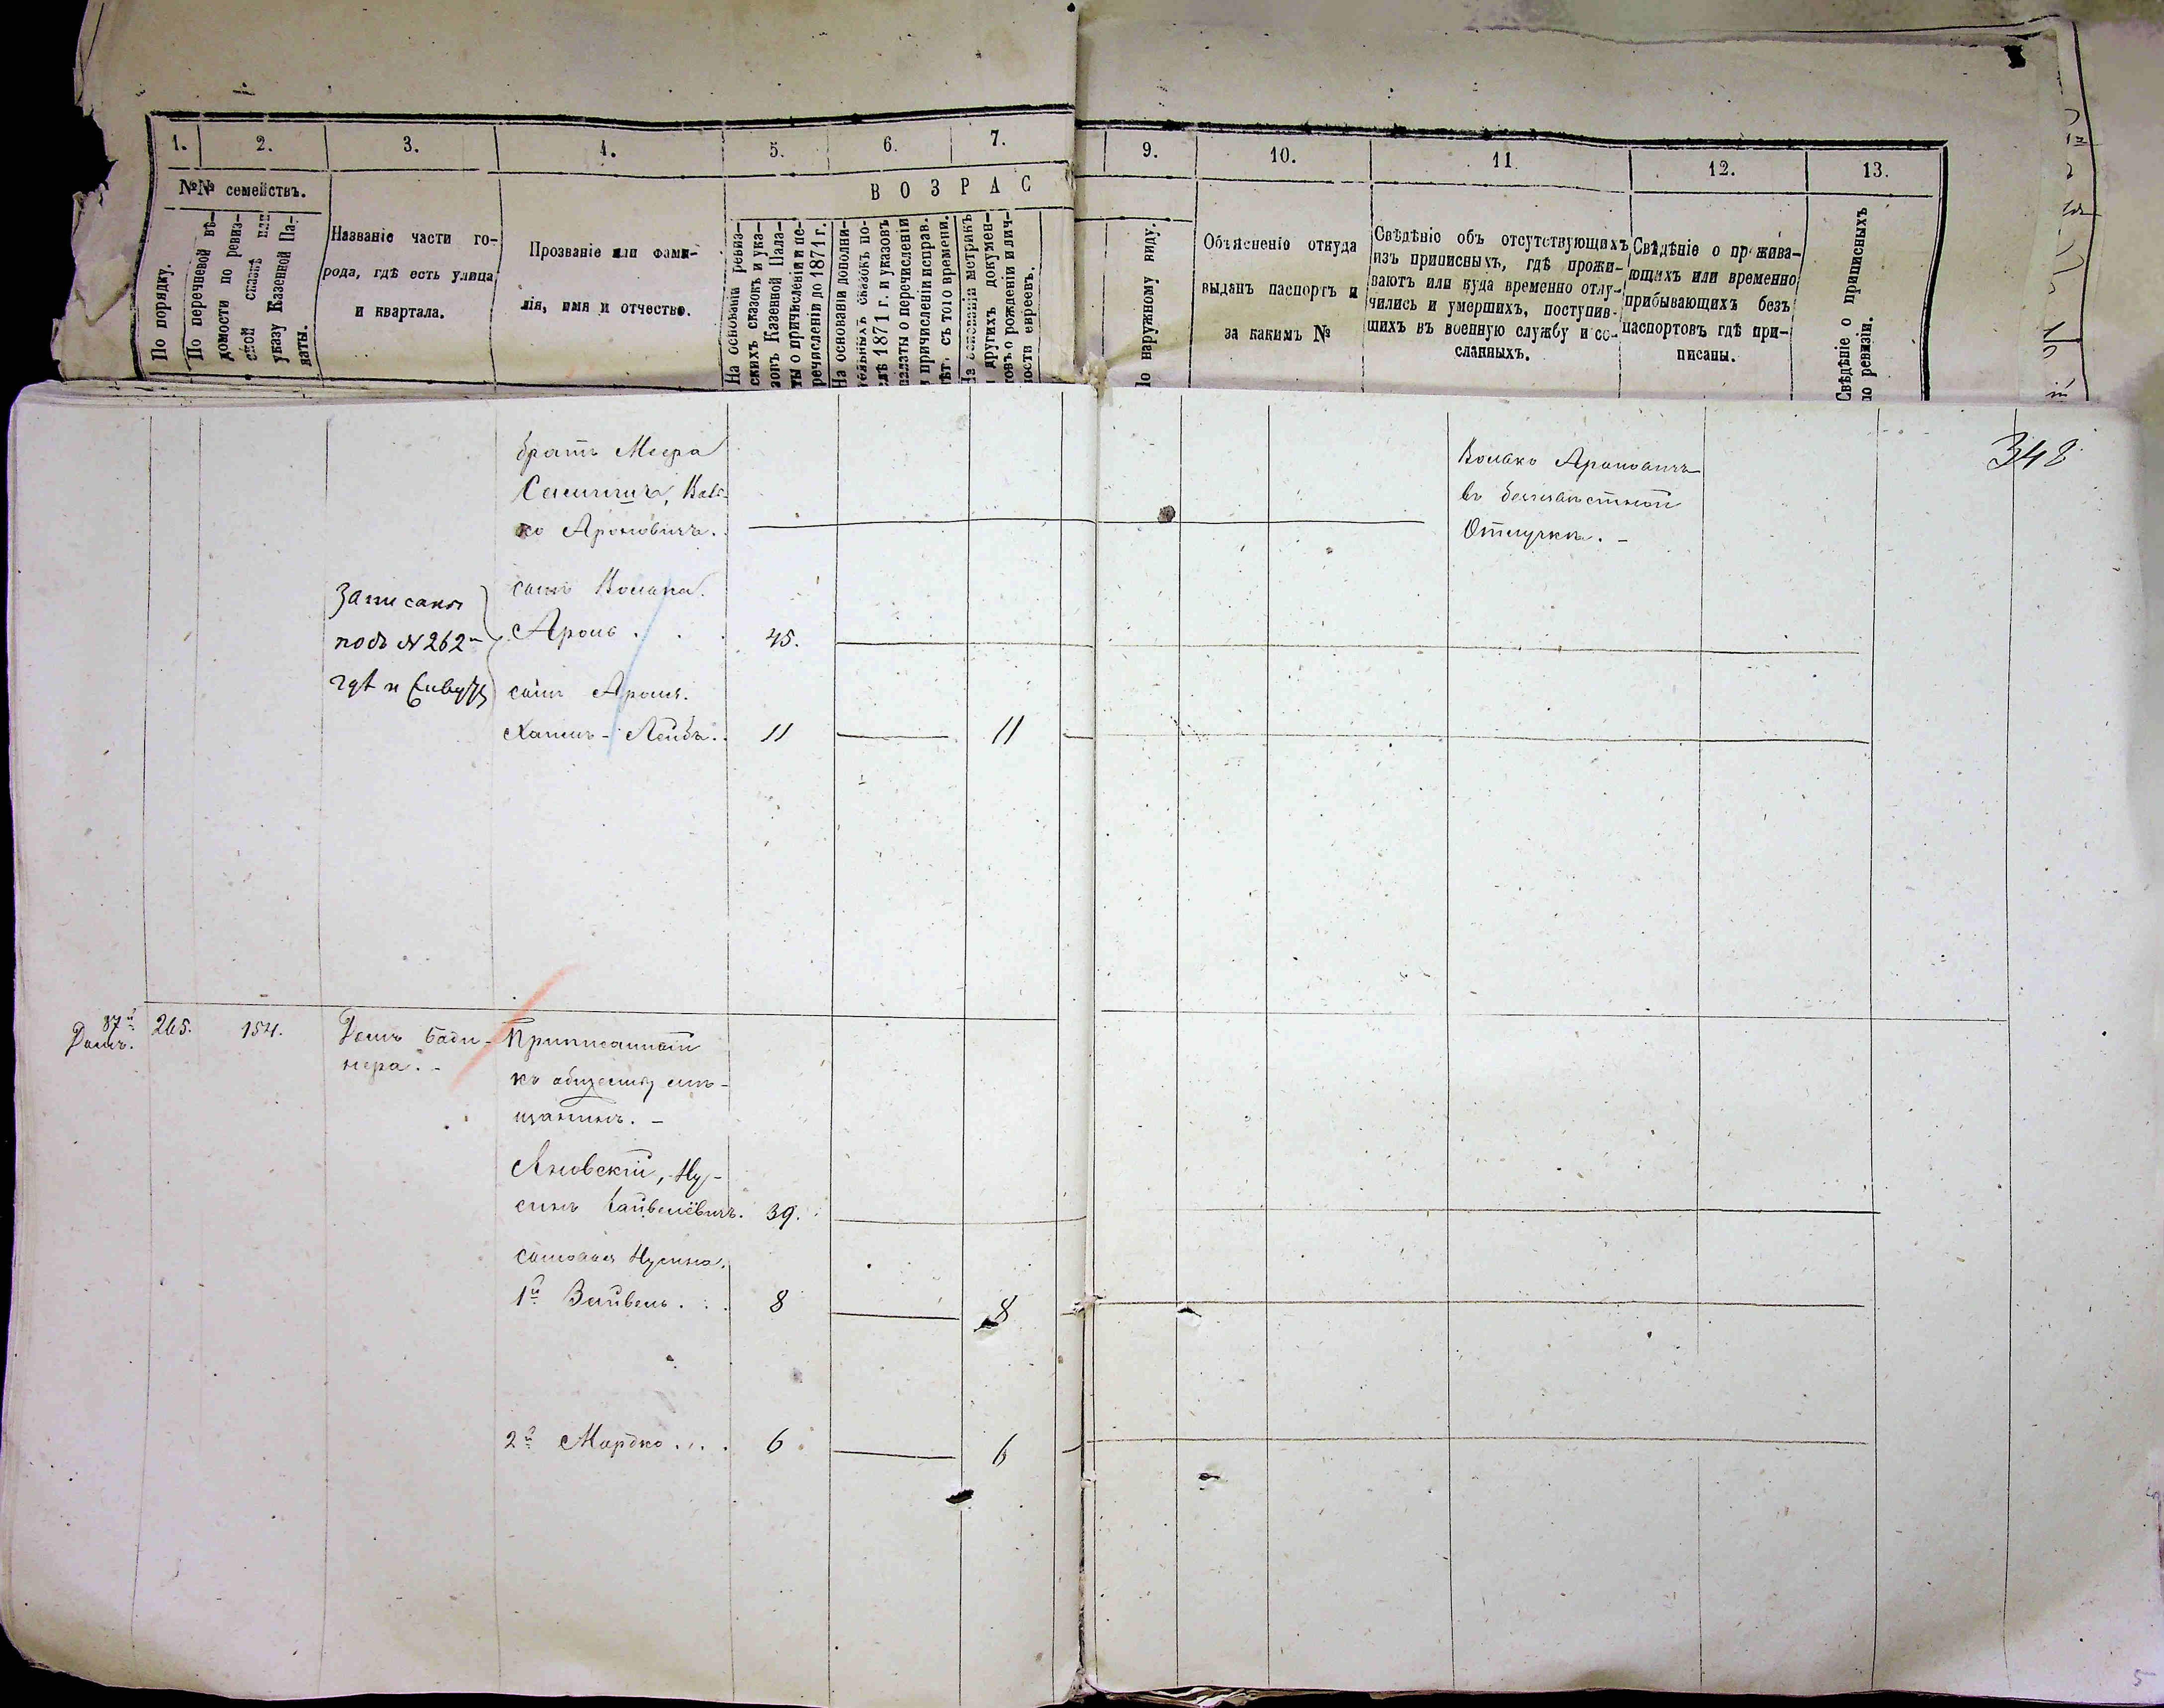 1. 2. 3. 4. 5. 6. 7. 9. 10. 11 12. 13.
№№ семействъ.
По порядку.
По перечневой вѣ-
домости по ревиз-
ской сказкѣ или
указу Казенной Па-
латы.
Названіе части го-
рода, гдѣ есть улица
и квартала.
Прозваніе или фами-
лія, имя и отчество.
ВОЗРАС
На основаніи ревиз-
скихъ сказокъ и ука-
зовъ Казенной Пала-
ты о причисленіи и пе-
речисленіи до 1871 г.
На основаніи дополни-
тельныхъ сказокъ по-
слѣ 1871 г. и указовъ
палаты о перечисленіи
и причисленіи исправ.
лѣтъ съ того времени.
На основаніи метрикъ
и другихъ докумен-
товъ о рожденіи и лич-
ности евреевъ.
По наружному виду.
Объясненіе откуда
выданъ паспортъ и
за какимъ №
Свѣдѣніе объ отсутствующихъ
изъ приписныхъ, гдѣ прожи-
ваютъ или куда временно отлу-
чились и умершихъ, поступив-
шихъ въ военную службу и со-
сланныхъ.
Свѣдѣніе о прожива-
ющихъ или временно
прибывающихъ безъ
паспортовъ гдѣ при-
писаны.
Свѣдѣніе о приписныхъ
по ревизіи.
348
братъ Меера
ко Ароновичъ.
Ароновичъ
въ безызвѣстной
Отлучкѣ. -
Записанъ
подъ № 262
гдѣ и
сынъ
Аронъ . . 45.
сынъ Арона.
Хаимъ-Лейба. 11 11
87й
Домъ.
265. 154.
Домъ Бади-
нера. -
Приписанный
къ обществу мѣ-
щанинъ. -
Яновскій, Ну-
синъ Зайвелевичъ. 39.
сыновья Нусина.
1й Зайвель. . . 8 8
2й Мордко . . . 6 6
5